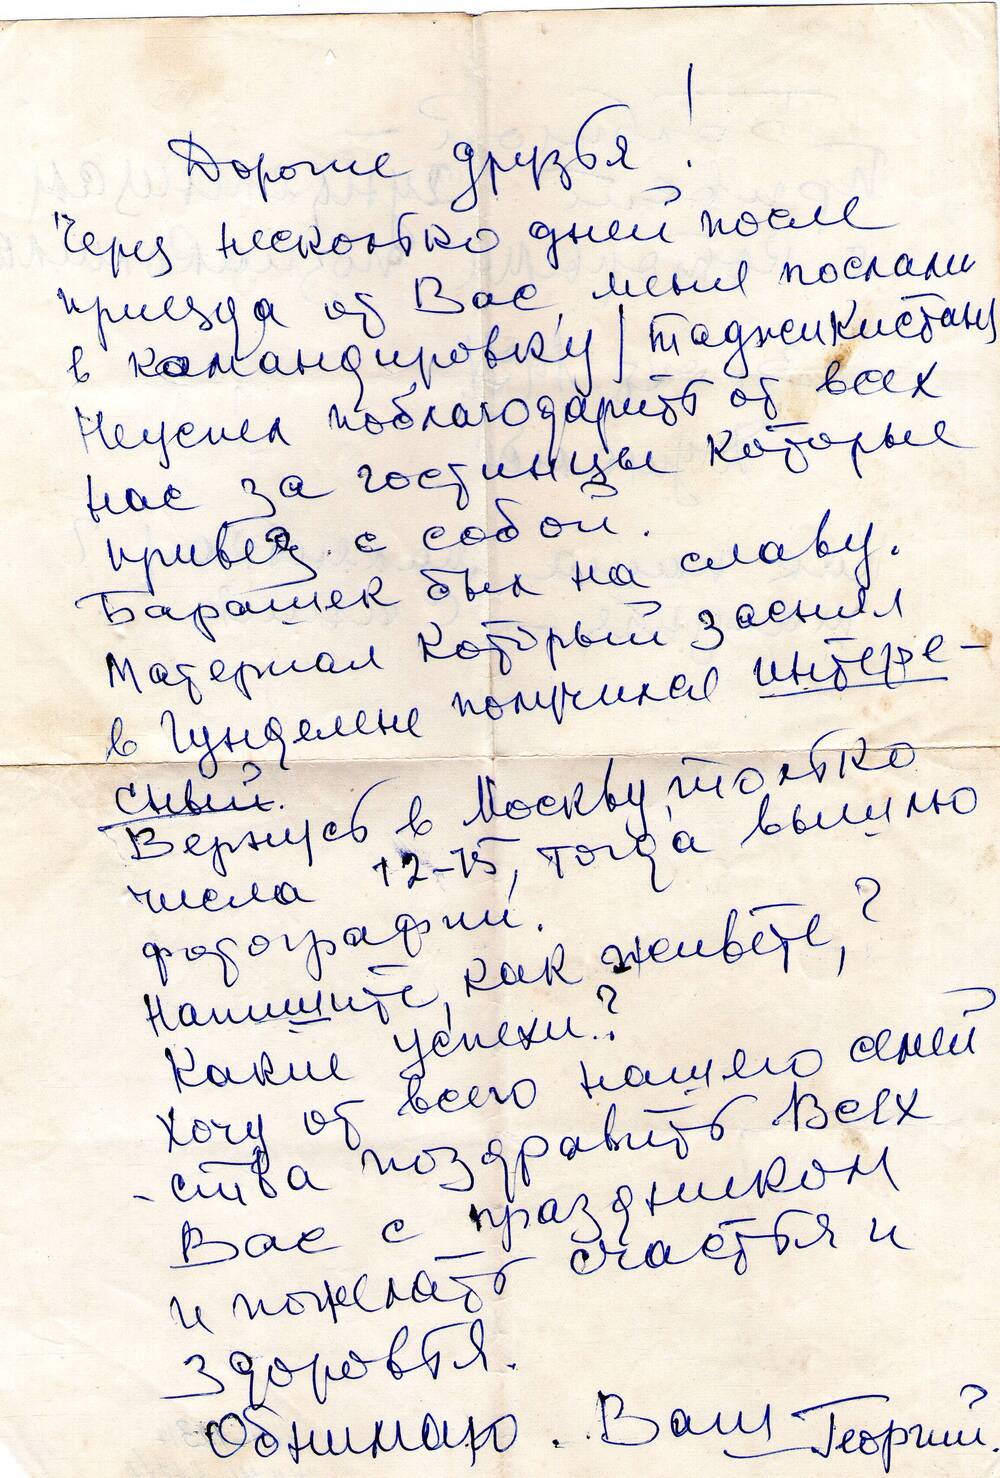 Дорогие друзья!
Через несколько дней после
приезда от Вас, меня послали
в командировку/Таджикистан/
Неуспел поблагодарить от всех
нас за гостинцы которые
привез с собой.
Барашек был на славу.
Материал который заснял
в Гунделене получился интере-
сный.
Вернусь в Москву, только
числа 12-15, тогда вышлю
фотографии.
Напишите, как живёте,?
Какие успехи.?
Хочу от всего нашего семей
-ства поздравить Всех
Вас с праздником
и пожелать счастья и
здоровья.
Обнимаю. Ваш Георгий.